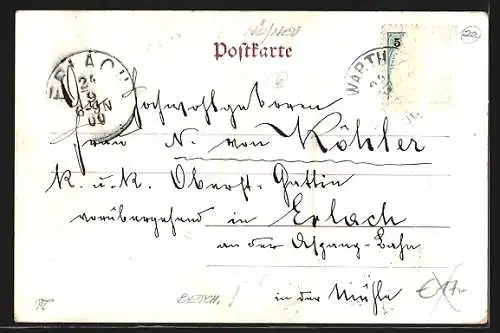 NÖ/NEU
Postkarte
5
ERLACH
24
9
00
WARTH
Hochwohlgeboren
Frau N. von Köhler
K. u. K. Oberst-Gattin
vorübergehend in Erlach
an der Aspang-Bahn
in der Mühle
€17.-